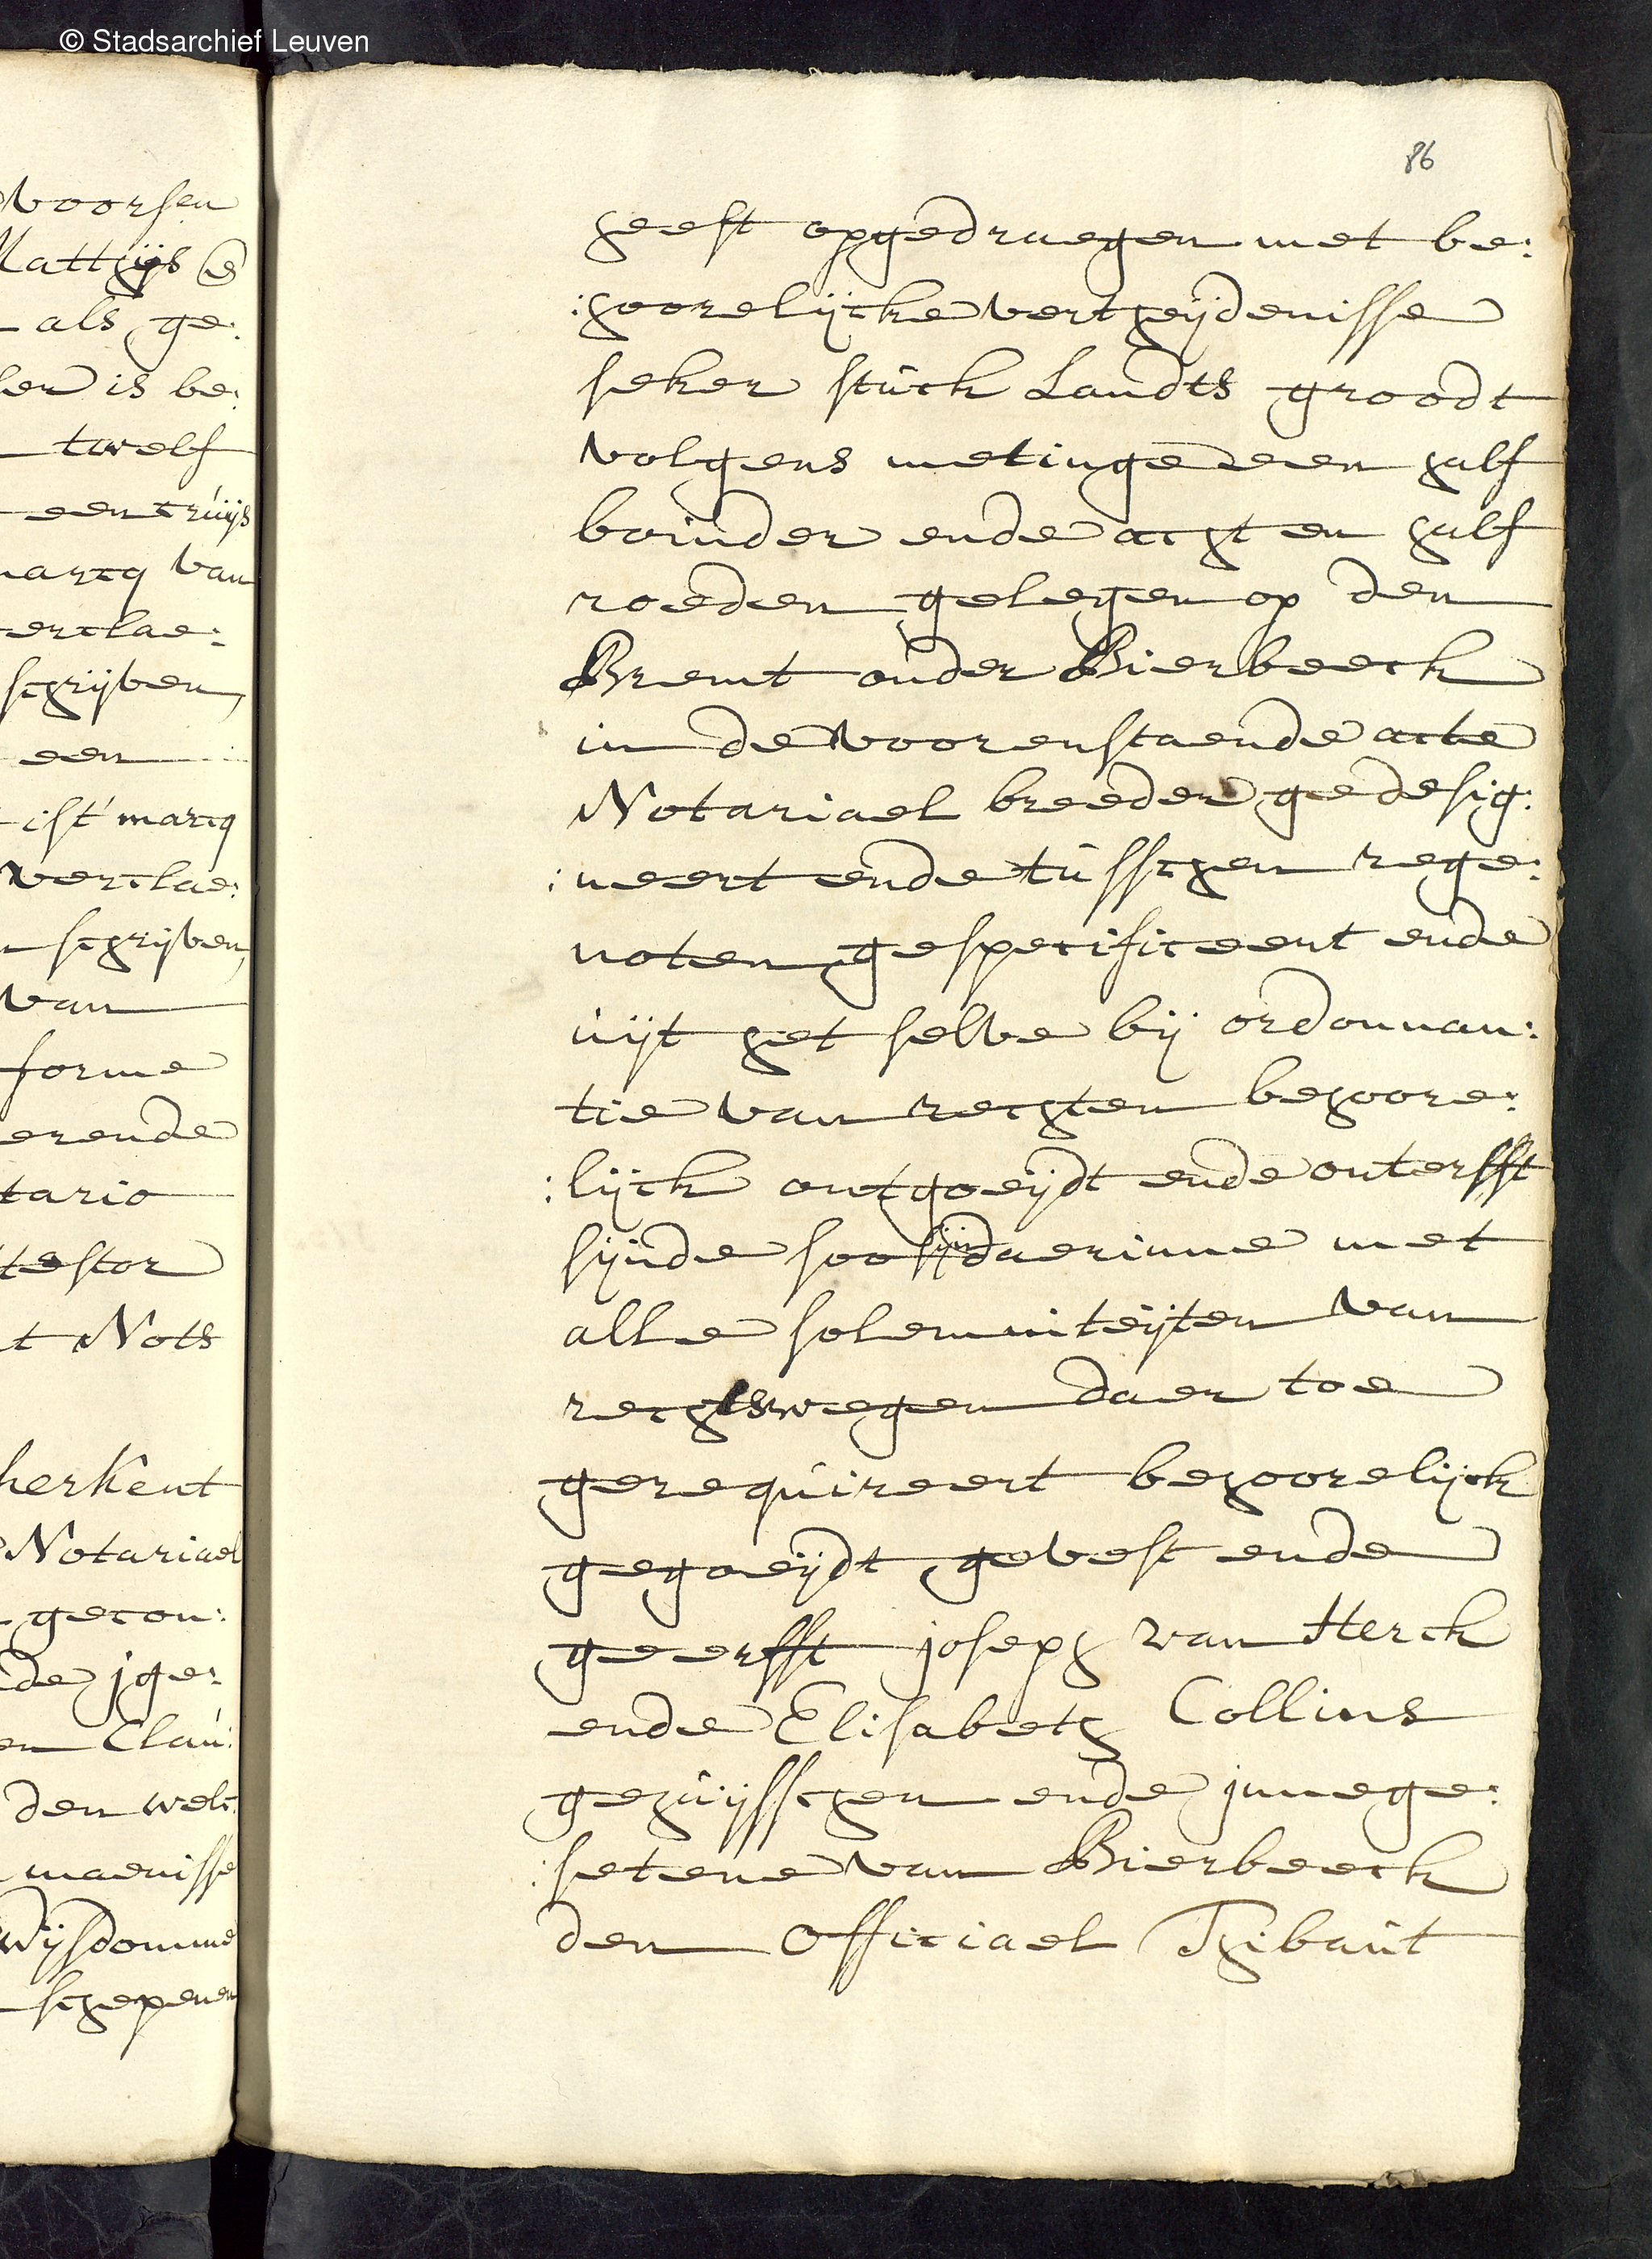 © Stadsarchief Leuven
voorsen
Matthijs
als ge:
is be:
twelf
een cruijs
marcq van
verclae:
schrijven,
een
ist' marcq
verclae:
schrijven,
van
forme
erende
tario
testor
t Nots
herkent
Notariael
gecon:
de jge:
en Clau:
den welc:
maenisse
wijsdomme
schepenen
86
heeft opgedraegen met be:
:hoorelijcke vertheijdenisse
seker stuck Landts groodt
volgens metinge een half
boinder ende acht en half
roeden gelegen op den
Bremt onder Bierbeeck
in de voorenstaende acte
Notariael breeder gedesig:
:neert ende tusschen rege:
noten gespecificeert ende
uijt het selve bij ordonnan:
tie van rechten behoore:
:lijck ontgoeijdt ende onterfft
sijnde soo sijn daerinne met
alle solemniteijten van
rechtswegen daer toe
gerequireert behoorelijck
gegoeijdt gevest ende
geerfft joseph van Herck
ende Elisabeth Collins
gehuijsschen ende innege:
:setene van Bierbeeck
den Officiael Thibaut